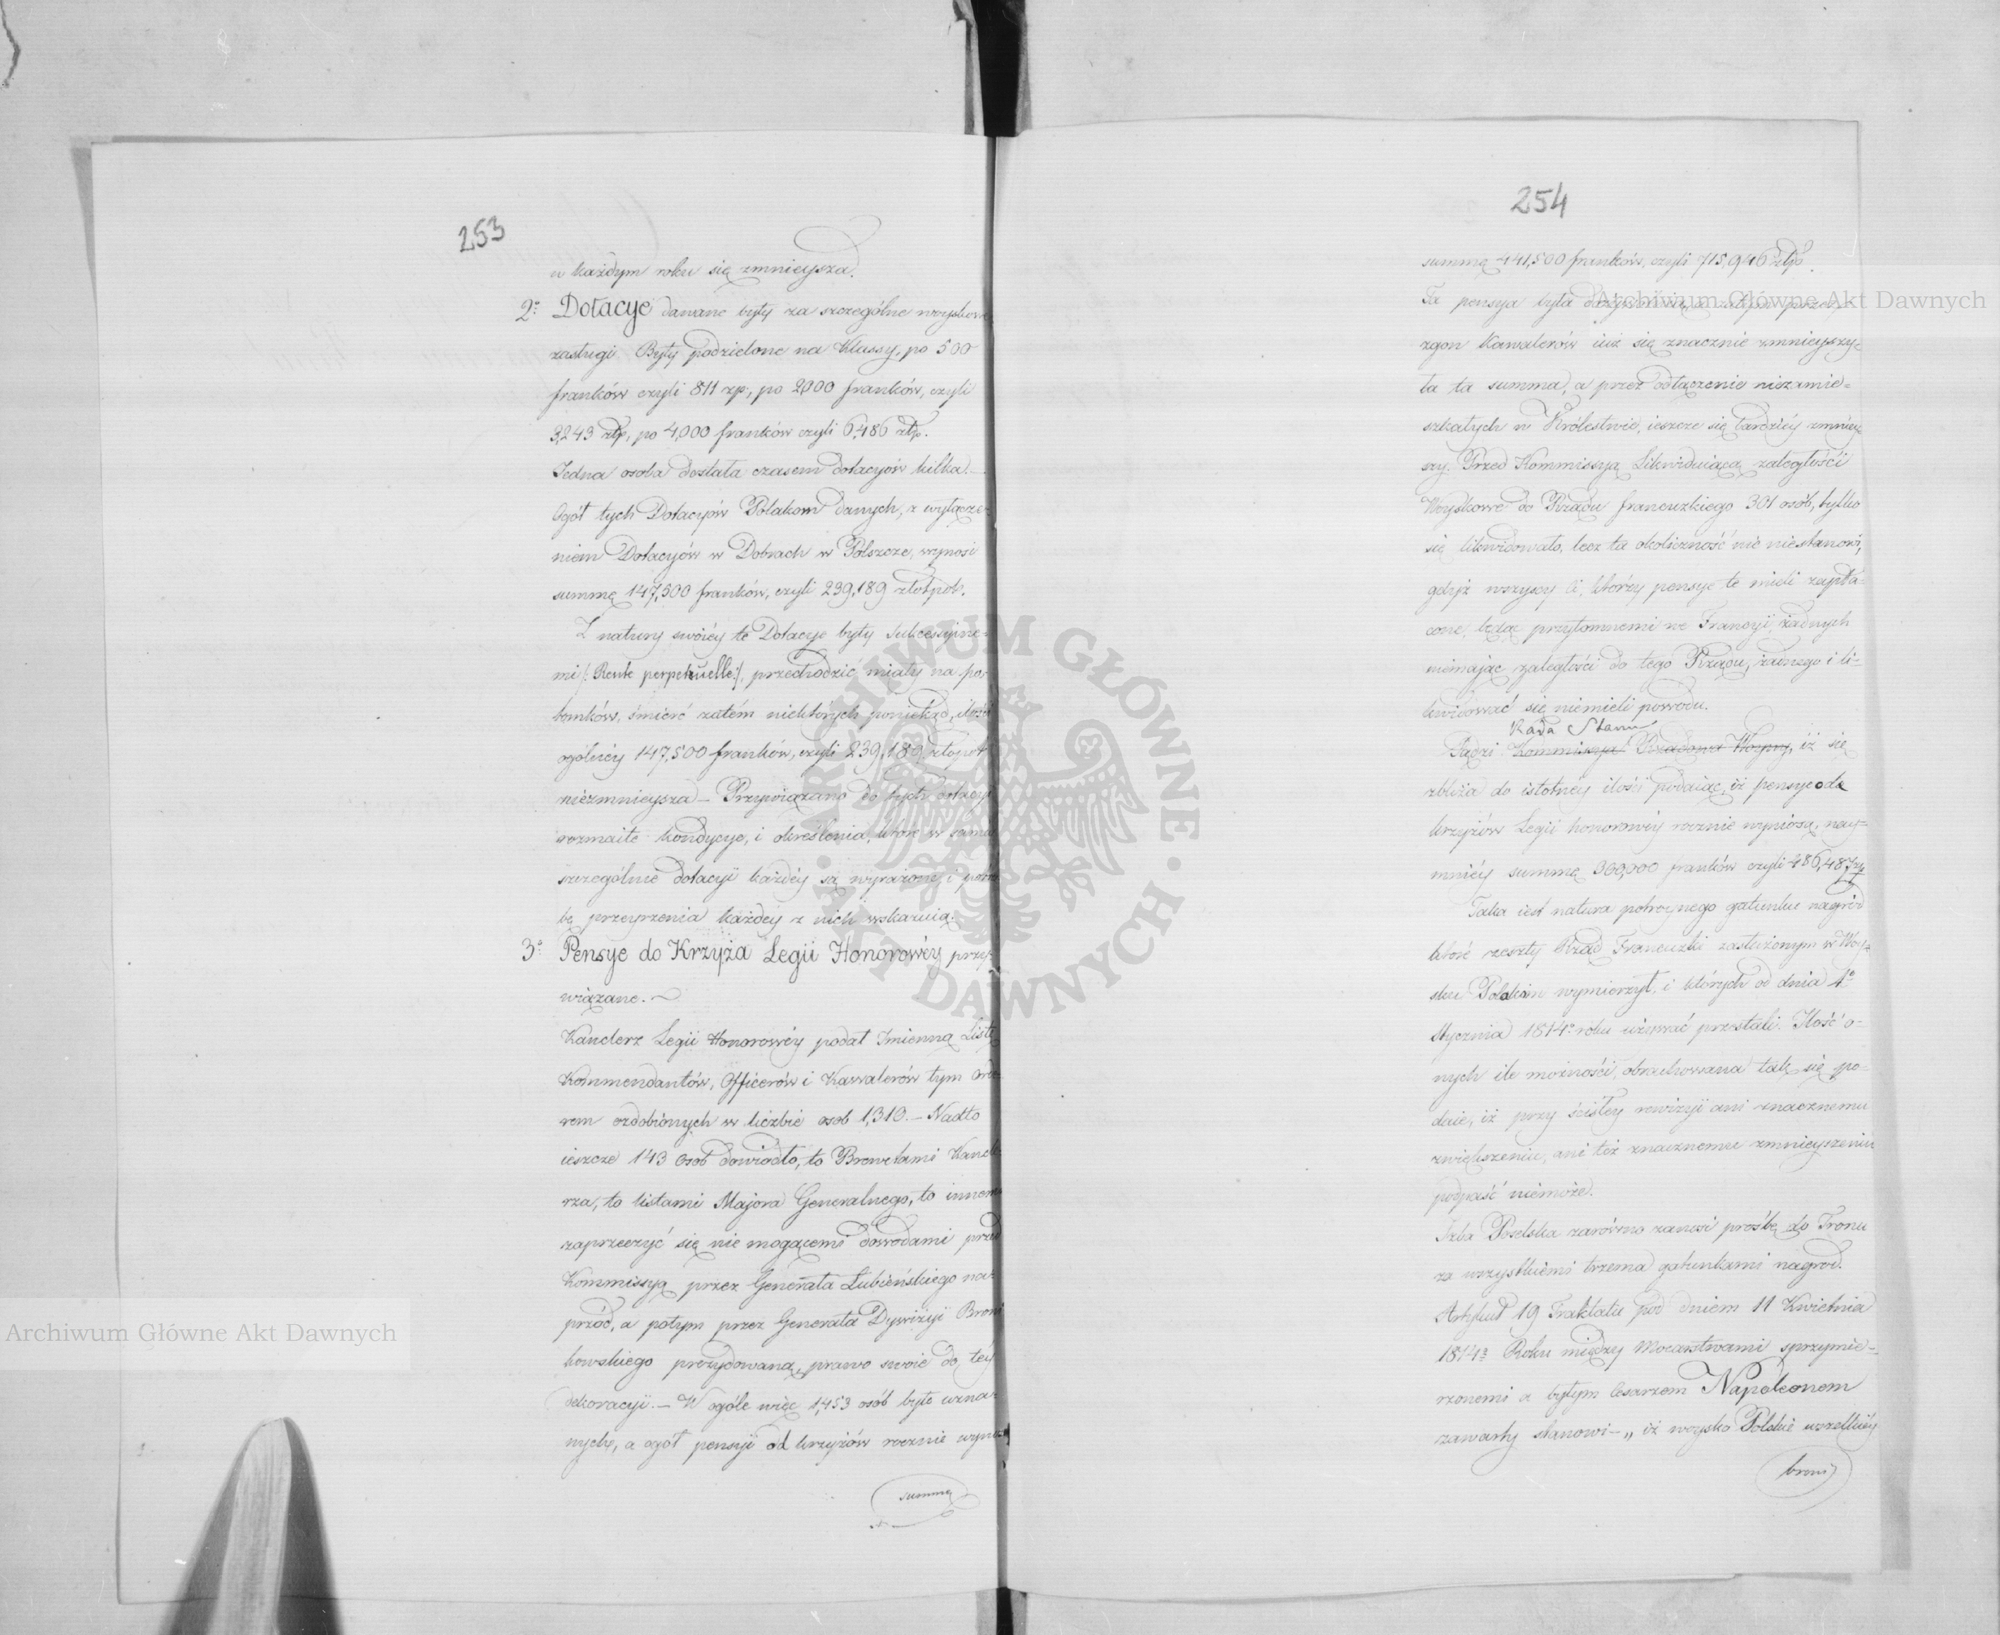 253
w każdym roku się zmnieysza.
2º Dotacye dawane były za szczególne woyskowe
zasługi. Były podzielone na Klassy, po 500
franków czyli 811 zp:, po 2,000 franków, czyli
3,243 złp, po 4,000 franków czyli 6,486 złp.
Jedna osoba dostała czasem dotacyów kilka.
Ogół tych Dotacyów Polakom danych, z wyłącze-
niem Dotacyów w Dobrach w Polszcze, wynosi
summę 147,500 franków, czyli 239,189 złotpol.
Z natury swoiéy te Dotacye były Sukcessyine-
mi /: Rente perpetuelle :/, przechodzić miały na po-
tomków, śmierć zatém niektorych poniekąd, ilości
ogólnéy 147,500 franków, czyli 239,189 złotpol
niezmnieysza – Przywiązano do tych dotacyi
rozmaite kondycye, i określenia, które w
szczególnie dotacyi każdéy są wyrażone, i
bę przeyrzenia każdéy z nich wskazuią.
3º Pensye do Krzyża Legii Honorowéy przy-
wiązane.
Kanclerz Legii Honorowéy podał Jmienną Listę
Kommendantów, Officerów i Kawalerów tym Orde-
rem ozdobionych w liczbie osob 1,310. – Nadto
ieszcze 143 osob dowiodło, to Brewetami Kancle-
rza, to listami Majora Generalnego, to innemi
zaprzeczyć się nie mogącemi dowodami przed
Kommissyą przez Generała Łubieńskiego na-
przód, a potym przez Generała Dywizyi Broni-
kowskiego prezydowaną, prawo swoie do téy
dekoracyi. – W ogóle więc 1,453 osób było uzna-
nych, a ogół pensyi od krzyżów rocznie wynosi
summę
254
summę 441,500 franków, czyli 715,946 złp.
Ta pensya była dożywotnią, a zatym przez
zgon Kawalerów iuż się znacznie zmnieyszy-
ła ta summa, a przez odłączenie niezamie-
szkałych w Królestwie, ieszcze się bardziéy zmniey-
szy. Przed Kommissyą Likwiduiącą zaległości
Woyskowe do Rządu francuzkiego 301 osób, tylko
się likwidowało, lecz ta okoliczność nic niestanowi,
gdyż wszyscy ci, którzy pensye te mieli zapła-
cone, będąc przytomnemi we Francyi, żadnych
niemając zaległości do tego Rządu, żadnego i li-
kwidować się niemieli powodu.
Rada Stanu
Sądzi Kommissya Rządowa Woyny, iż się
zbliża do istotnéy ilości podaiąc, iż pensye od
krzyżów Legii honorowéy rocznie wyniosą, nay-
mniéy summę 300,000 franków czyli 486,487 złp
Taka iest natura potróynego gatunku nagród
które zeszły Rząd Francuzki zasłużonym w Woy-
sku Polskim wymierzył, i których od dnia 1º
Stycznia 1814º roku używać przestali. Ilość o-
nych ile możności, obrachowana tak się po-
daie, iż przy ścisłey rewizyi ani znacznemu
zwiększeniu, ani też znacznemu zmnieyszeniu
podpaść niemoże.
Izba Poselska zarówno zanosi prośbę do Tronu
za wszystkiemi trzema gatunkami nagród.
Artykuł 19 Traktatu pod dniem 11 Kwietnia
1814º Roku między Mocarstwami sprzymie-
rzonemi a byłym Cesarzem Napoleonem
zawarty stanowi – „ iż woysko Polskie wszelkiéy
broni
Archiwum Główne Akt Dawnych
Archiwum Główne Akt Dawnych
ARCHIWUM GŁÓWNE
· AKT DAWNYCH ·